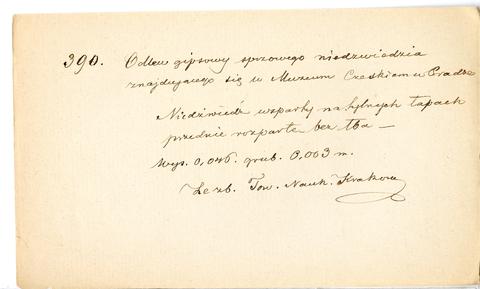 390. Odlew gipsowy spiżowego niedzwiedzia
znajdującego się w Muzeum Czeskiem w Pradze
Niedźwiedź wsparty na tylnych łapach
przednie rozparte bez tła —
Wys. 0,046. grub. 0,003 m.
Ze zb. Tow. Nauk. Krakow